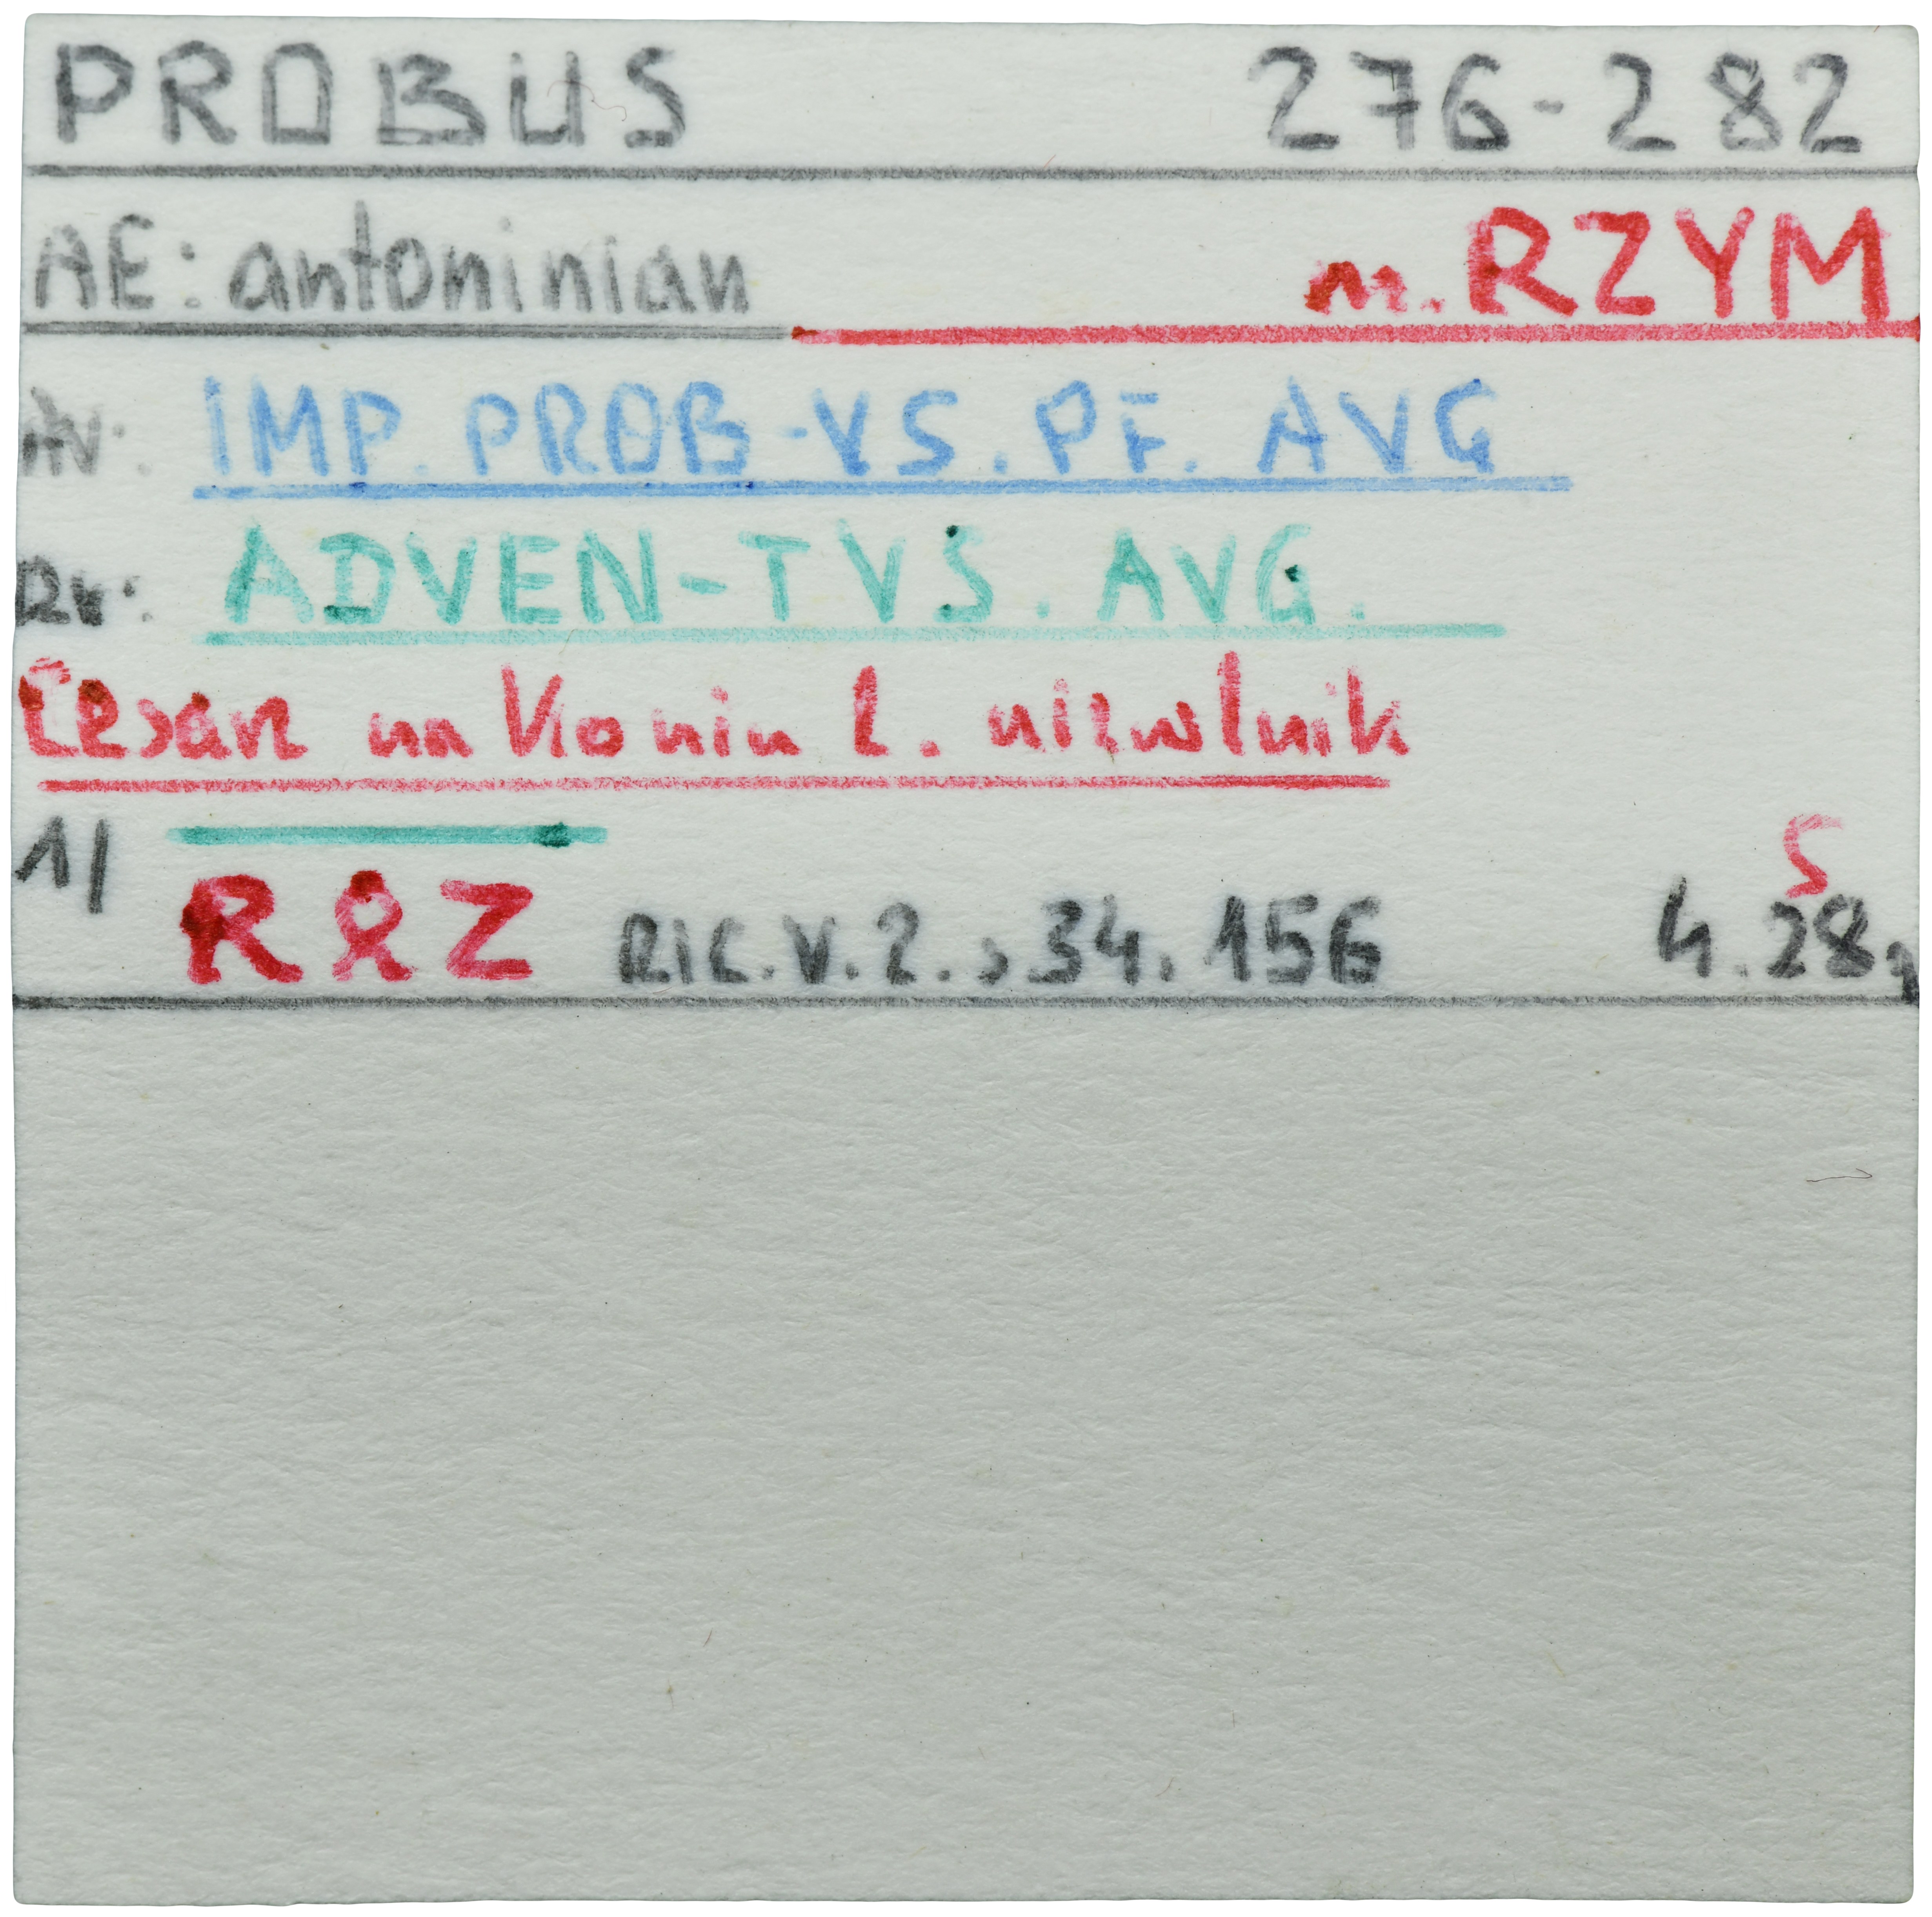 PROBUS 276-282
AE: antoninian m. RZYM
Av: IMP. PROB-VS. PF. AVG
Rv: ADVEN-TVS. AVG.
Cesarz na koniu l. niewolnik
S
1/ R Z RIC.V.2.s34.156 4.28g